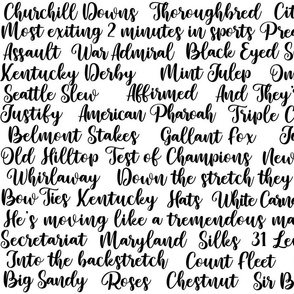 Churchill Downs Thoroughbred Cit
Most exiting 2 minutes in sports Prea
Assault War Admiral Black Eyed S
Kentucky Derby Mint Julep On
Seattle Slew Affirmed And They'
Justify American Pharoah Triple C
Belmont Stakes Gallant Fox
Old Hilltop Test of Champions New
Whirlaway Down the stretch they
Bow Ties Kentucky Hats White Carna
He's moving like a tremendous ma
Secretariat Maryland Silks 31 Le
Into the backstretch Count Fleet
Big Sandy Roses Chestnut Sir B